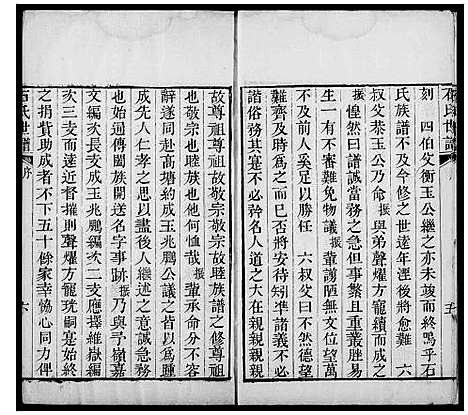 石氏世譜
序
五
刻　四伯父衡玉公繼之亦未竣而終嗚乎石
氏族譜不及今修之世遠年湮將難考矣　六
叔父泰玉公命　振　與弟聲耀方寵續而成之
振　輩曰修譜誠當務之急但事繁責重叢脞易
生一有不審難免物議　振　輩謭陋無文位望萬
不及前人奚足以勝任　六叔父曰不然德望
難齊及時爲之而已否則將安待矧準諸義不
諧俗務其寔不必矜名人道之大在親親親親
故尊祖尊祖故敬宗敬宗故睦族譜之修尊祖
也敬宗也睦族也何他恤哉　振　輩承命分不容
辭遂同赴高塘約成玉兆鵬公議之皆以爲踵
成先人仁孝之思以盡後人繼述之意誠急務
也始遍傳闔族開送名字事跡　振　乃與予嶺嘉
文編次長支成玉兆鵬編次二支應擇維嶽編
次三支而遠近督摧則聲耀方寵珖嗣寔始終
之捐貲助成者不下五十餘家幸戀心同力俾
石氏世譜
序
六